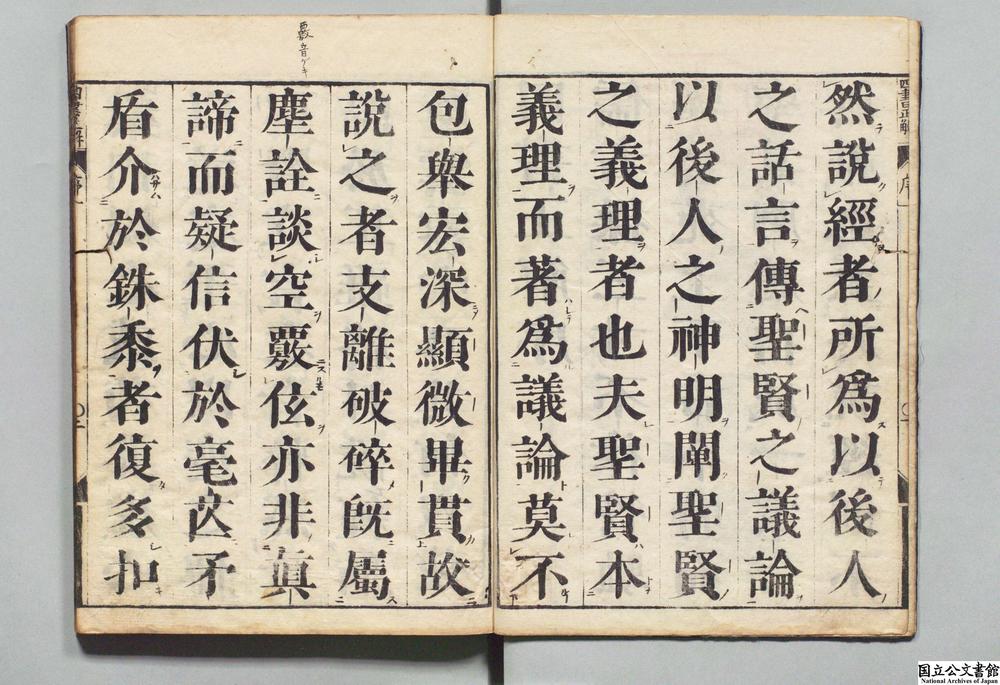 然說經者所爲以後人
之話言傳聖賢之議論
以後人之神明闡聖賢
之義理者也夫聖賢本
義理而著爲議論莫不
包舉宏深顯微畢貫故
說之者支離破碎旣屬
塵詮談空覈伭亦非眞
諦而疑信伏於毫𣬈矛
盾介於銖黍者復多扣
覈音ゲキ
四書正解
序
国立公文書館
National Archives of Japan